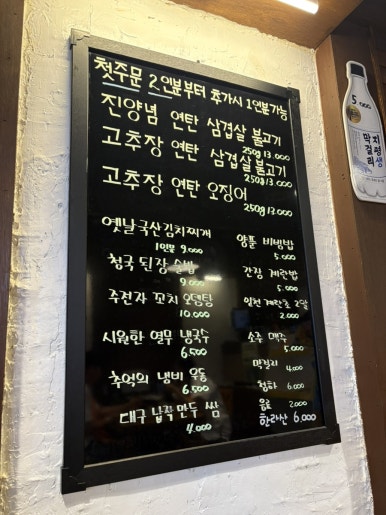 첫주문 2인분부터 추가시 1인분가능
진양념 연탄 삼겹살 불고기
250g 13.000
고추장 연탄 삼겹살 불고기
250g 13.000
고추장 연탄 오징어
250g 13.000
옛날국산김치찌개
1인분 9.000
청국 된장 술밥
9.000
주전자 꼬치 오뎅탕
10.000
시원한 열무 냉국수
6.500
추억의 냄비 우동
6.500
대구 납작만두 쌈
4.000
양푼 비빔밥
5.000
간장 계란밥
5.000
계란후 2알
2.000
소주 맥주
5.000
막걸리 4.000
청하 6.000
음료 2.000
한라산 6.000
5.000
지평생
막걸리